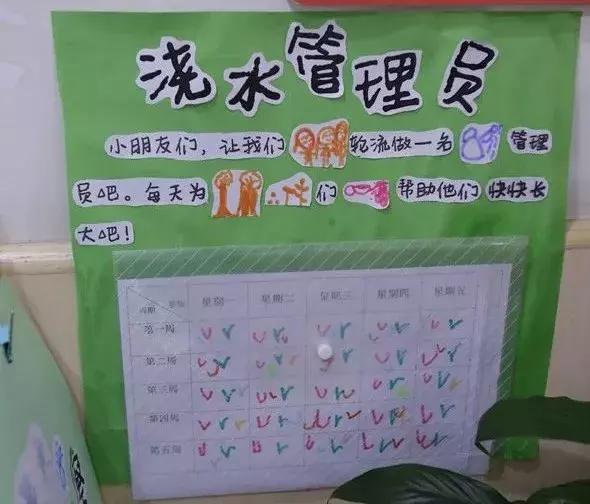 浇水管理员
小朋友们，让我们轮流做一名管理
员吧。每天为们帮助他们快快长
大吧！
星期
周期
星期一 星期二 星期三 星期四 星期五
第一周
第二周
第三周
第四周
第五周